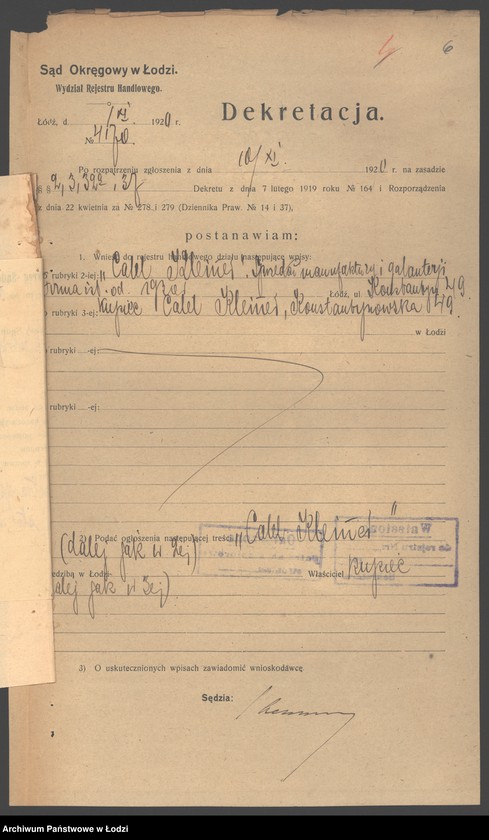 6
Sąd Okręgowy w Łodzi.
Wydział Rejestru Handlowego.
Łódź, d. /XI. 1920 r.
№ 4170.
Dekretacja.
Po rozpatrzeniu zgłoszenia z dnia 10/XI. 1920 r. na zasadzie
§ § 2, 3, 32a, 37 Dekretu z dnia 7 lutego 1919 roku № 164 i Rozporządzenia
z dnia 22 kwietnia za № 278 i 279 (Dziennika Praw. № 14 i 37),
postanawiam:
1. Wnieść do rejestru handlowego działu następujące wpisy:
rubryki 2-iej: „Calel Klemes". Sprzedaż manufaktury i galanterji
firma istn. od. Łódź, ul. Konstantyn 49.
rubryki 3-ej: kupiec Calel Klemes, Konstantynowska 49.
w Łodzi
rubryki ....-ej:
rubryki ....-ej:
2) Podać ogłoszenia następującej treści: „Calel Klemes"
(dalej jak w 2ej)
siedzibą w Łodzi Właściciel kupiec
dalej jak w 3ej)
3) O uskutecznionych wpisach zawiadomić wnioskodawcę.
Sędzia:
Archiwum Państwowe w Łodzi